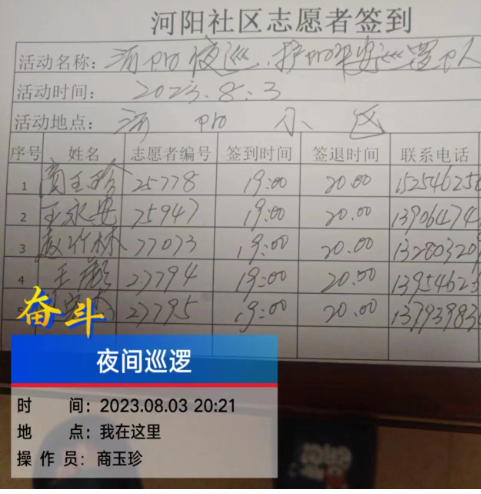 河阳社区志愿者签到
活动名称：河阳夜巡，护阳平安巡逻
活动时间：2023.8.3
活动地点：河阳小区
序号 姓名 志愿者编号 签到时间 签退时间 联系电话
1 商玉珍 25778 19:00 20.00 15254625
2 王永安 25947 19:00 20.00 13906474
3 赵竹林 27073 19:00 20.00 13280320
4 王 27794 19:00 20.00 1395462
27795 19:00 20.00 13793983
奋斗
夜间巡逻
时 间：2023.08.03 20:21
地 点：我在这里
操 作 员：商玉珍